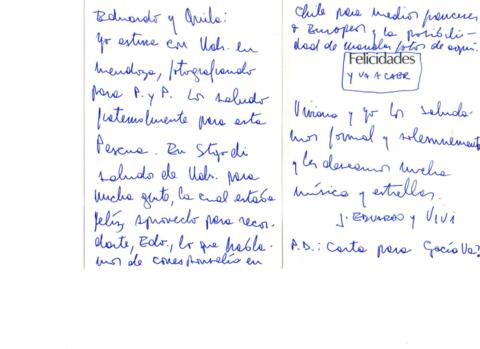 Eduardo y
Yo estuve con Uds. en
Mendoza, fotografiando
para P. y P. Los saludo
fraternalmente para esta
Pascua. En Stgo di
saludo de Uds. para
mucha gente, la cual estaba
feliz, aprovecho para recor-
darte, Edo., lo que habla-
mos de corresponsalía en
Chile para medios franceses
o Europeos y la posibili-
dad de mandar fotos de aquí.
Felicidades
Y VA A CAER
Viviana y yo los saluda-
mos formal y solemnemente
y les deseamos mucha
música y estrellas.
J. EDUARDO Y VIVI
P.D.: Carta para